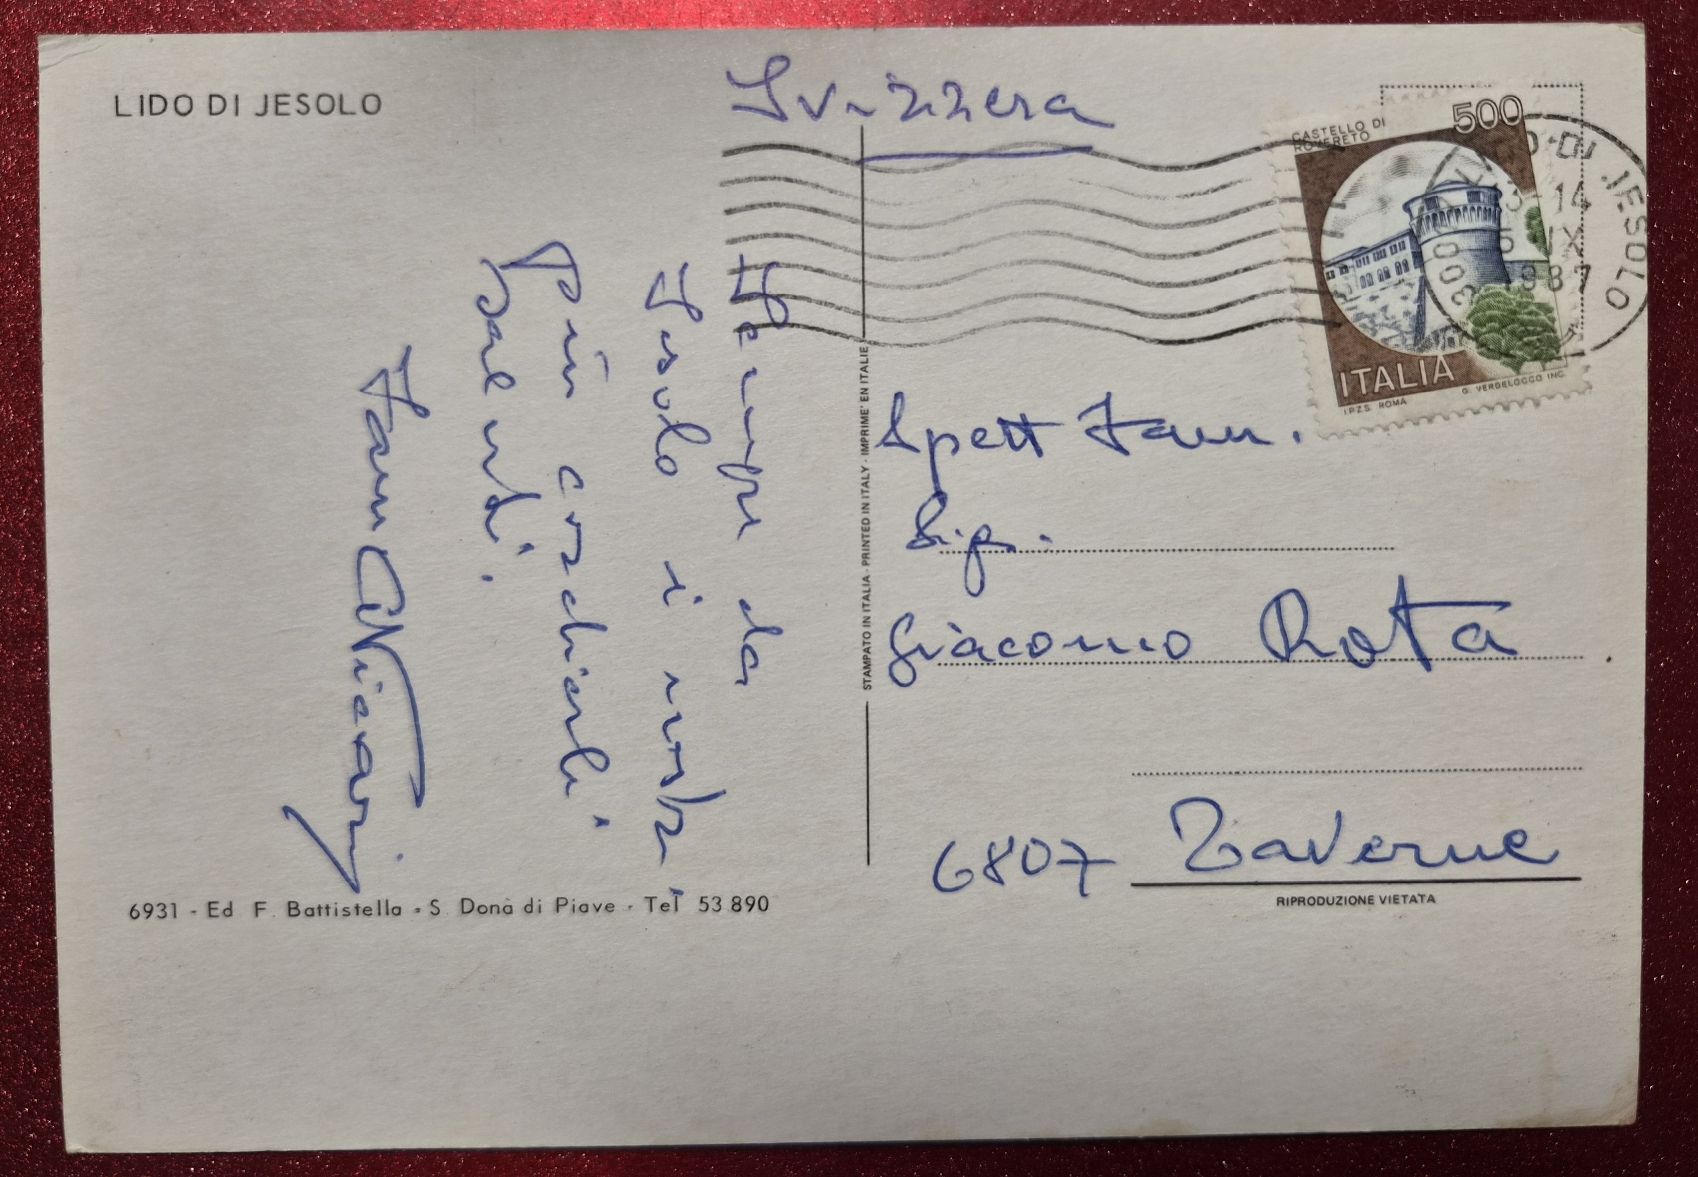 LIDO DI JESOLO
Svizzera
CASTELLO DI
ROVERETO
500
ITALIA
I.P.Z.S. ROMA
G. VERGELOCCO INC.
DI JESOLO
14
IX
Sempre da
Jesolo i nostri
più cordiali
Saluti.
Fam
STAMPATO IN ITALIA - PRINTED IN ITALY - IMPRIME' EN ITALIE
Spett Fam.
Sig.
Giacomo Rota
6807 Taverne
RIPRODUZIONE VIETATA
6931 - Ed F. Battistella - S. Donà di Piave - Tel 53 890